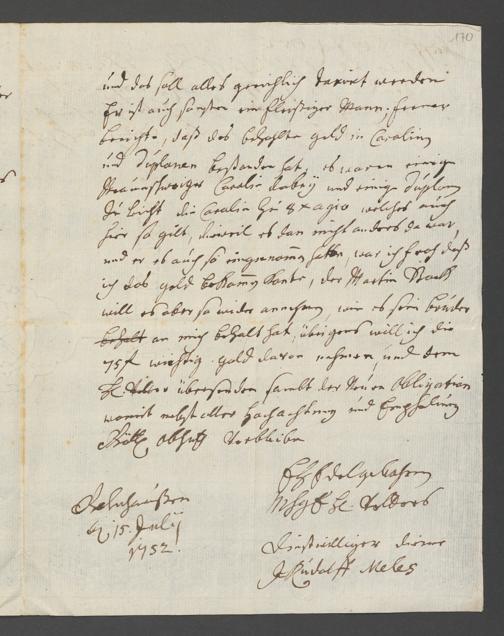 170
und das soll alles gerichtlich taxirt werden
Er ist auch sonsten ein fleissiger Mann, ferner
berichte, daß das bezahlte geld in Carolin
und Duplonen bestanden hat, es waren einige
Carolin dabey und einige Duplon
zu leicht die Carolin zu 8 x agio welches auch
hier so gilt, dieweil es dan nicht anders da war,
und er es auch so eingenommen hatte, war ich froh daß
ich das geld bekommen konte, der Martin
will es aber so wider annehmen, wie es sein bruder
bezalt an mich bezalt hat, übrigens will ich die
75 f wichtig geld davon nehmen und dem
H. übersenden samt der Neuen Obligation
womit nebst aller hochachtung und Empfelung
Göttl. obhutt verbleibe
HhEdelgebohrn
MhgH H.
den 15. Julij
1752.
Dienstwilliger diener
J Rudolff Meles